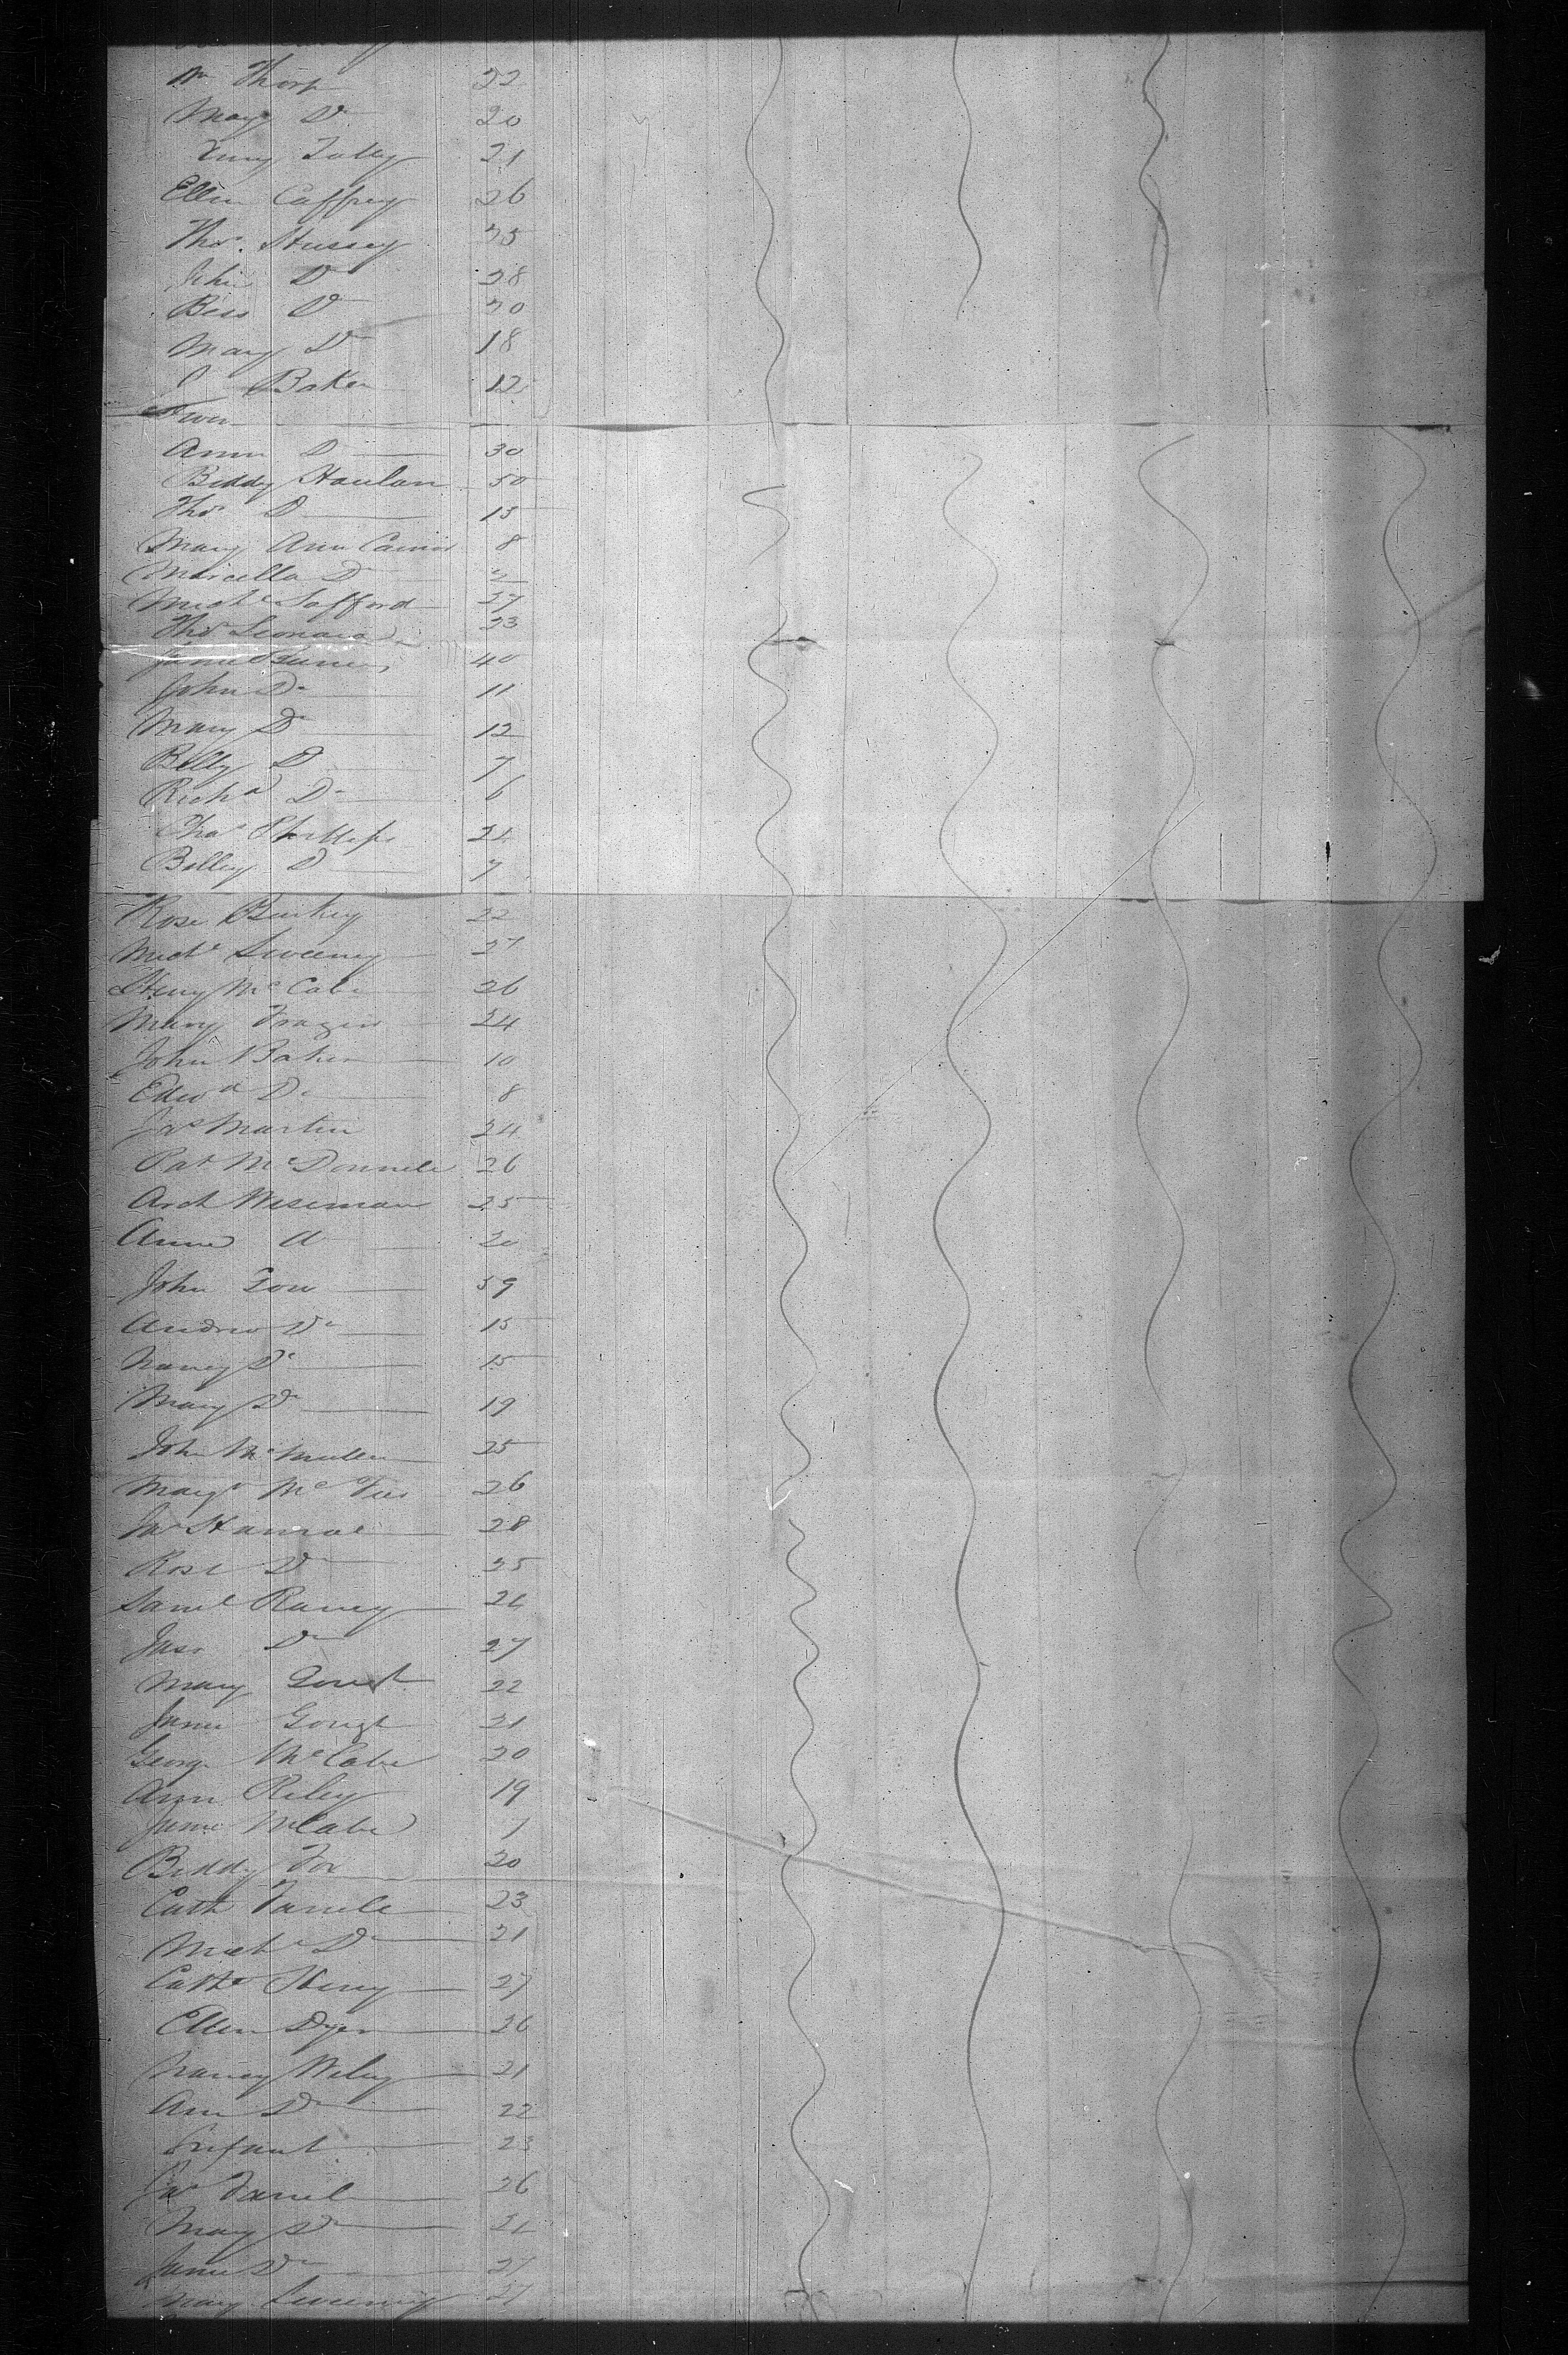 Wm Thorp 22
Mary Do 20
Tully 21
Ellen Caffrey 26
Thos. Hussey 25
John Do 28
Bess Do 20
Mary Do 18
Baker 12
Ann D 30
Biddy Hanlan 50
Thos D 13
Mary Ann 8
Marcella D
Michl Safford 27
Thos Leonard 23
Jane 40
John Do 11
Mary Do 12
Billy D 7
Richd Do 6
Chas Phillips 24
Billy D 7
Rose 22
Michl Sweeney 27
Henry McCabe 26
Mary Frazier 24
John Baker 10
Edwd Do 8
Jas Martin 24
Pat McDonnele 26
Arch Wiseman 25
Anne 20
John Gow 59
Andrew Do 15
Nancy Do 15
Mary Do 19
John McMullen 25
Margt Mc 26
Jas 28
Rose Do 25
Saml Raney 24
Do 27
Mary 22
Jane Gough 21
George McCabe 20
Ann Riley 19
Jane McCabe
Biddy Fox 20
Cath Farrele 23
Michl Do 21
Cathe Henry 27
Ellen Dyer 26
Nancy Wiley 21
Ann Do 22
Infant 23
Jas Farrel 26
Mary Do
Jane Do 21
Mary Sweeney